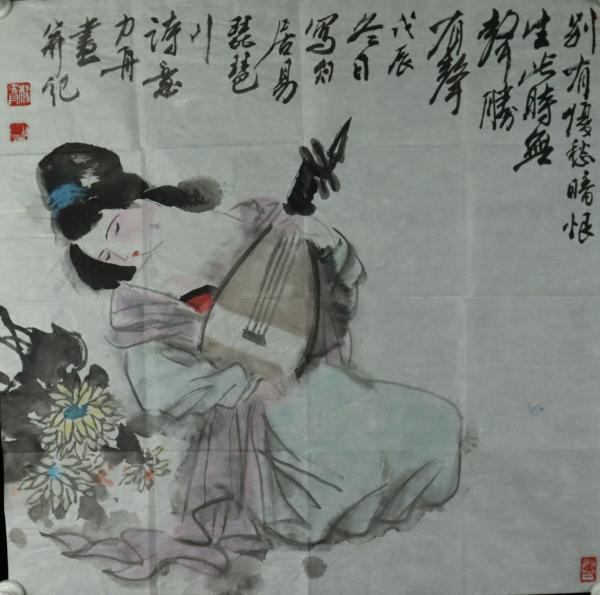 别有憂愁暗恨
生此時無
聲勝
有聲
戊辰
冬日
寫白
居易
琵琶
行
詩意
力舟
畫
并記